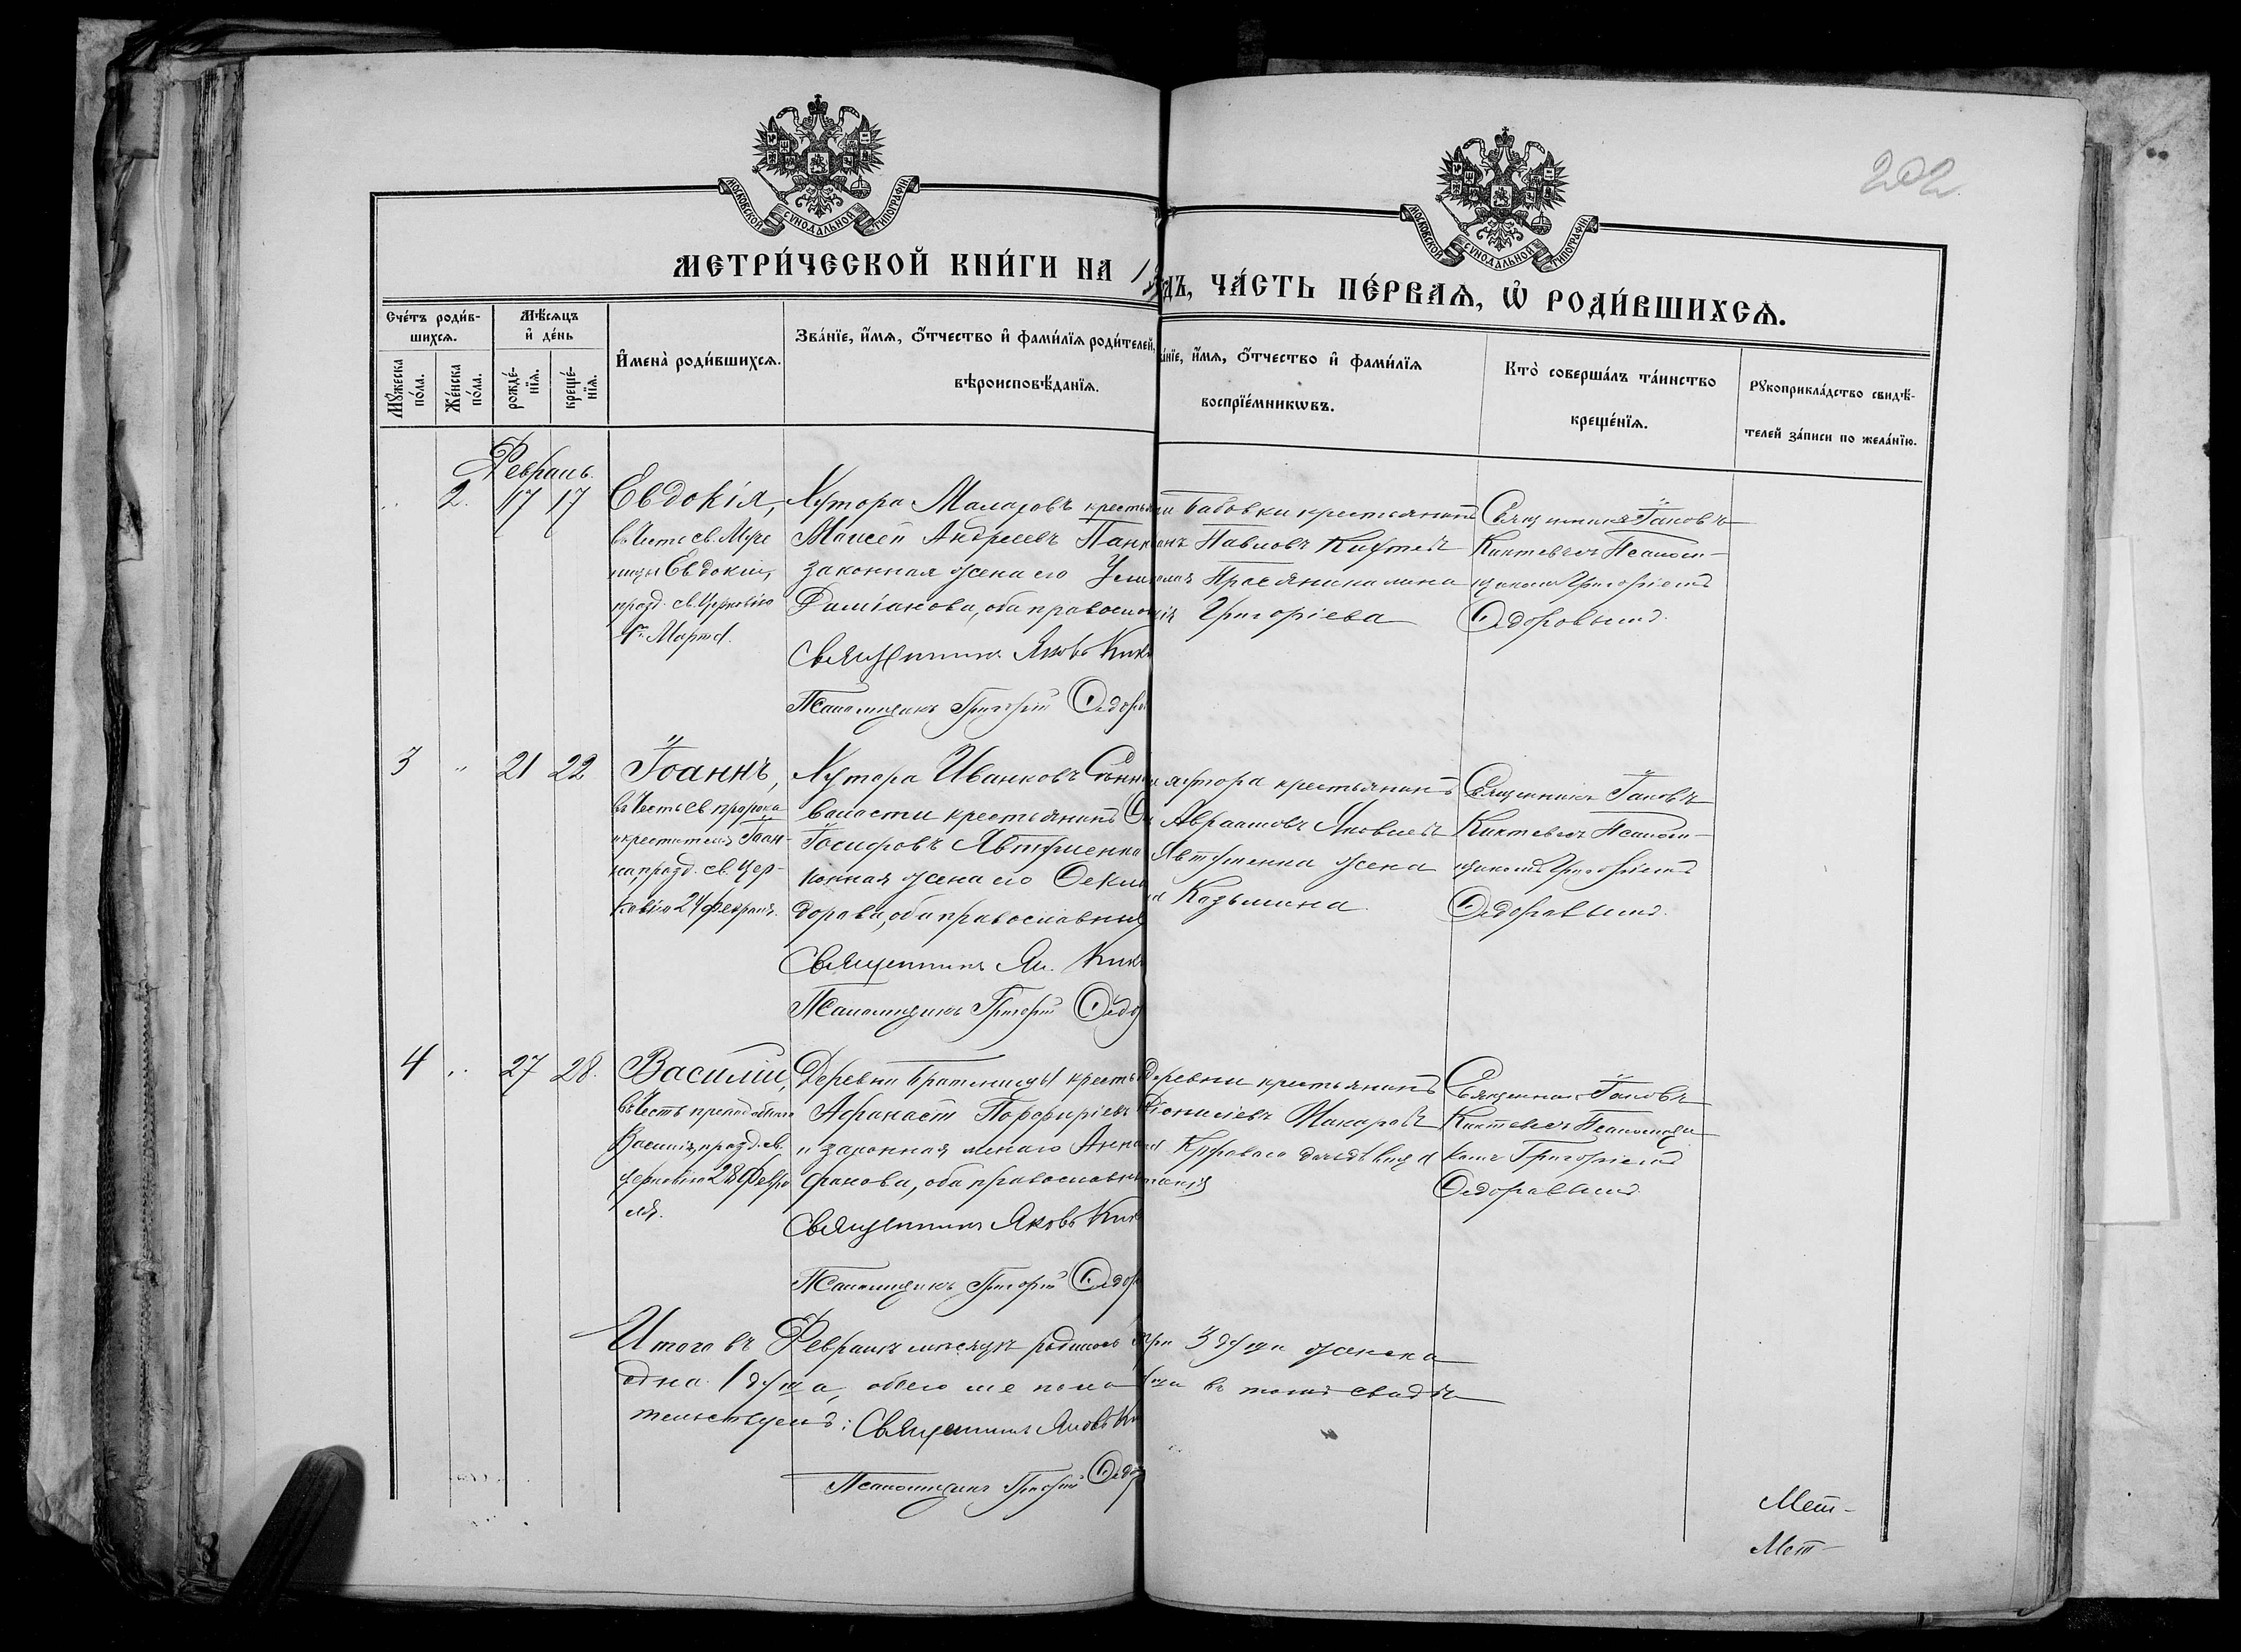 202
МОСКОВСКОЙ СѴНОДАЛЬНОЙ ТИПОГРАФІИ
МОСКОВСКОЙ СѴНОДАЛЬНОЙ ТИПОГРАФІИ
МЕТРИ́ЧЕСКОЙ КНИ́ГИ НА
ДЪ, ЧА́СТЬ ПЕ́РВАѦ, Ѿ РОДИ́ВШИХСѦ.
Сче́тъ роди́в-
шихсѧ.
Мꙋжеска по́ла.
Же́нска по́ла.
Мѣ́сѧцъ
и҆ де́нь
рожде́-
нїѧ.
креще́-
нїѧ.
И҆мена̀ роди́вшихсѧ.
Зва́нїе, и҆́мѧ, ѻ҆́тчество и҆ фами́лїѧ роди́телей,
вѣроисповѣ́данїѧ.
а́нїе, и҆́мѧ, ѻ҆́тчество и҆ фами́лїѧ
воспрїе́мникѡвъ.
Кто̀ соверша́лъ та́инство
креще́нїѧ.
Рꙋкоприкла́дство свидѣ́-
телей за́писи по жела́нїю.
Февраль.
2. 17 17
Евдокія,
въ честь св. Муче
ницы Евдокіи,
празд. св. Церковію
1го Марта.
Хутора крестья
Моисей Андреевъ
законная жена его
Даміанова, оба православ
Священникъ Яковъ
Псаломщикъ Григорій Ѳедоро
Бабовки крестьянинъ
Павловъ
Григоріева
Священникъ Іаковъ
Псалом-
щикомъ Григоріемъ
Ѳедоровымъ.
3 " 21 22
Іоаннъ,
въ честь св. пророка
и крестителя Іоан-
на, празд. св. Цер-
ковію 24 Февраля.
Хутора Иванковъ
волости крестьянинъ
Іосифовъ Явтушенко
конная жена его Ѳекла
дорова, оба православные
Священникъ Як.
Псаломщикъ Григорій Ѳедо
хутора крестьянинъ
Авраамовъ Яковлевъ
Явтушенка жена
Козьмина.
Священникъ Іаковъ
Псалом-
щикомъ Григоріемъ
Ѳедоровымъ.
4 " 27 28.
Василій,
въ честь преподобнаго
Василія, празд. св.
церковію 28 Февра
ля.
Деревни Братеницы крестья
Аѳанасій Порфиріевъ
и законная жена его Анна
фанова, оба православны
Священникъ Яковъ
Псаломщикъ Григорій Ѳедор
деревни крестьянинъ
Діонисіевъ Макаровъ
дочь дѣвица
Священникъ Іаковъ
Псаломщи
комъ Григоріемъ
Ѳедоровымъ.
Итого въ Февралѣ мѣсяцѣ родилось
три 3 души женска
одна 1 душа, обоего же пола
въ томъ свидѣ
тельствуемъ: Священникъ Яковъ
Псаломщикъ Григорій Ѳедо
Мет-
Мет-